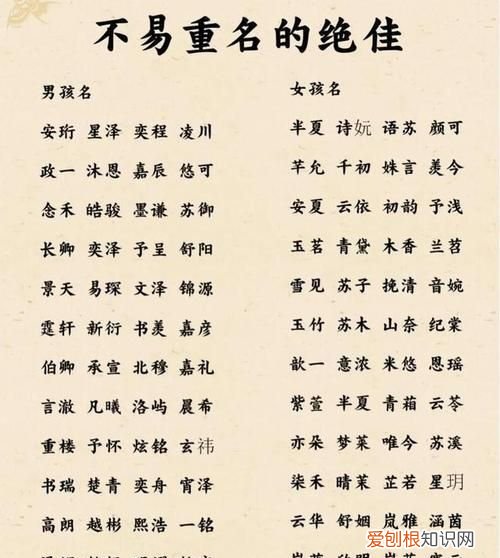 不易重名的绝佳
男孩名
安珩 星泽 奕程 凌川
政一 沐恩 嘉辰 悠可
念禾 皓骏 墨谦 苏御
长卿 奕泽 予呈 舒阳
景天 易琛 文泽 锦源
霆轩 新衍 书羡 嘉彦
伯卿 承宣 北穆 嘉礼
言澈 凡曦 洛屿 晨希
重楼 予怀 炫铭 玄祎
书瑞 楚青 奕舟 宵泽
高朗 越彬 熙浩 一铭
女孩名
半夏 诗妧 语苏 颜可
芊允 千初 姝言 羡今
安夏 云依 初韵 予浅
玉茗 青黛 木香 兰苕
雪见 苏子 挽清 音婉
玉竹 苏木 山奈 纪棠
歆一 意浓 米悠 恩瑶
紫萱 半夏 青葙 云苓
亦朵 梦莱 唯今 苏溪
柒禾 晴茉 芷若 星玥
云华 舒姻 岚雅 涵茵
爱刨根知识网